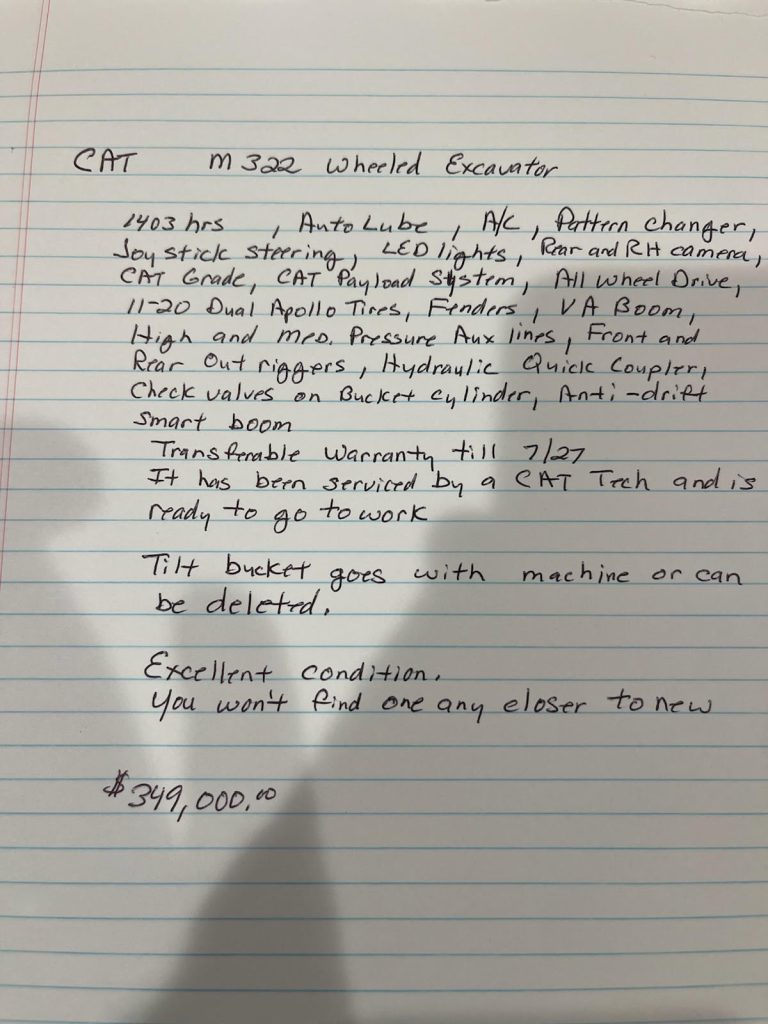 CAT M322 Wheeled Excavator
1403 hrs , Auto Lube , A/C , Pattern changer,
Joy stick steering, LED lights, Rear and RH camera,
CAT Grade, CAT Payload System, All wheel Drive,
11-20 Dual Apollo Tires, Fenders, VA Boom,
High and med. Pressure Aux lines, Front and
Rear Out riggers, Hydraulic Quick Coupler,
Check valves on Bucket cylinder, Anti-drift
Smart boom
Transferable Warranty till 7/27
It has been serviced by a CAT Tech and is
ready to go to work
Tilt bucket goes with machine or can
be deleted.
Excellent condition.
You won't find one any closer to new
$349,000.00